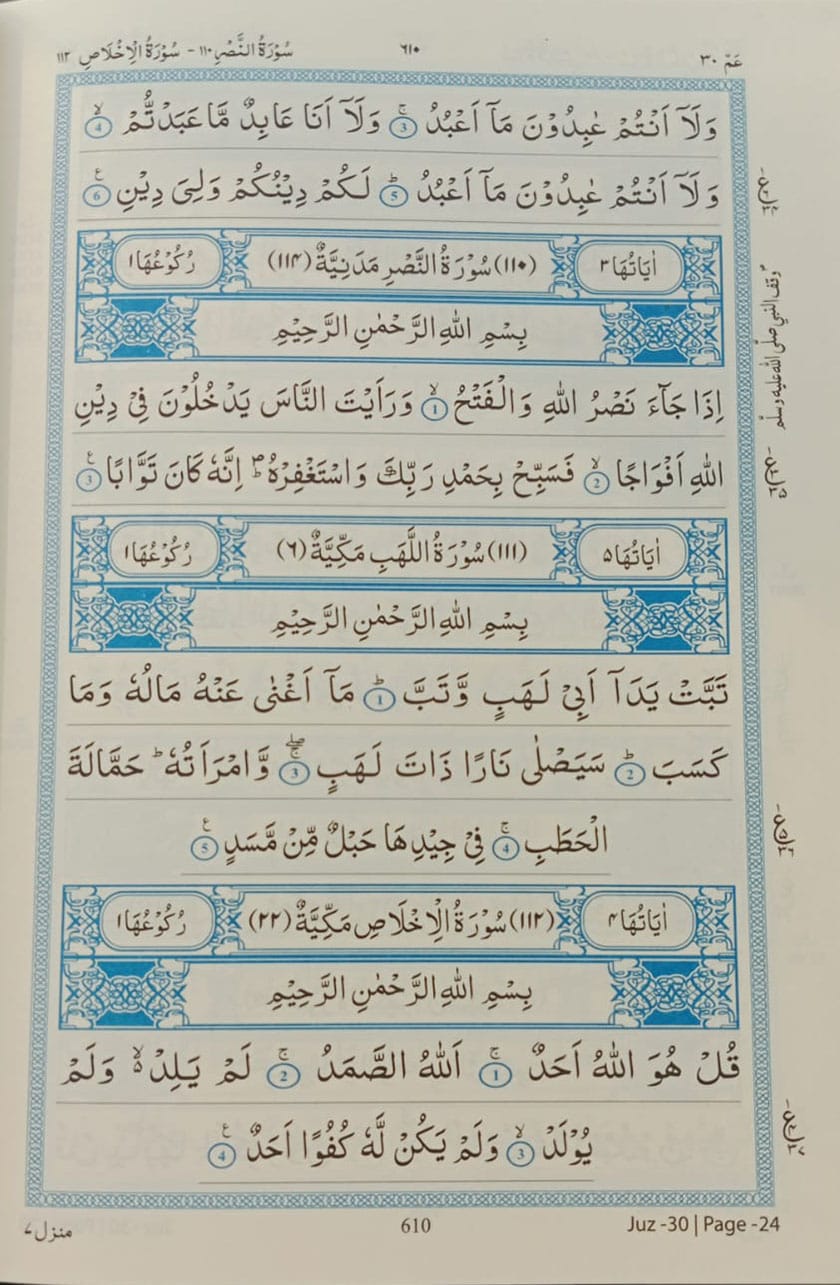 عَمّ ٣٠
٦١٠
سُوْرَةُ النَّصْرِ ١١٠ - سُوْرَةُ الْاِخْلَاصِ ١١٢
وَلَآ اَنْتُمْ عٰبِدُوْنَ مَآ اَعْبُدُ ۚ 3 وَلَآ اَنَا عَابِدٌ مَّا عَبَدْتُّمْ ۙ 4
وَلَآ اَنْتُمْ عٰبِدُوْنَ مَآ اَعْبُدُ ؕ 5 لَكُمْ دِيْنُكُمْ وَلِىَ دِيْنِ 6 ع
اٰيَاتُهَا ٣ (١١٠) سُوْرَةُ النَّصْرِ مَدَنِيَّةٌ (١١٤) رُكُوْعُهَا ١
بِسْمِ اللهِ الرَّحْمٰنِ الرَّحِيْمِ
اِذَا جَآءَ نَصْرُ اللهِ وَالْفَتْحُ ۙ 1 وَرَاَيْتَ النَّاسَ يَدْخُلُوْنَ فِىْ دِيْنِ
اللهِ اَفْوَاجًا ۙ 2 فَسَبِّحْ بِحَمْدِ رَبِّكَ وَاسْتَغْفِرْهُ ؕ اِنَّهٗ كَانَ تَوَّابًا 3 ع
وقف النبي صلّى الله عليه وسلّم
اٰيَاتُهَا ٥ (١١١) سُوْرَةُ اللَّهَبِ مَكِّيَّةٌ (٦) رُكُوْعُهَا ١
بِسْمِ اللهِ الرَّحْمٰنِ الرَّحِيْمِ
تَبَّتْ يَدَآ اَبِىْ لَهَبٍ وَّتَبَّ ؕ 1 مَآ اَغْنٰى عَنْهُ مَالُهٗ وَمَا
كَسَبَ ؕ 2 سَيَصْلٰى نَارًا ذَاتَ لَهَبٍ ۚۖ 3 وَّامْرَاَتُهٗ ؕ حَمَّالَةَ
الْحَطَبِ ۚ 4 فِىْ جِيْدِهَا حَبْلٌ مِّنْ مَّسَدٍ 5 ع
اٰيَاتُهَا ٤ (١١٢) سُوْرَةُ الْاِخْلَاصِ مَكِّيَّةٌ (٢٢) رُكُوْعُهَا ١
بِسْمِ اللهِ الرَّحْمٰنِ الرَّحِيْمِ
قُلْ هُوَ اللهُ اَحَدٌ ۚ 1 اَللهُ الصَّمَدُ ۚ 2 لَمْ يَلِدْ ۙ وَلَمْ
يُوْلَدْ ۙ 3 وَلَمْ يَكُنْ لَّهٗ كُفُوًا اَحَدٌ 4 ع
منزل ٧
610
Juz -30 | Page -24